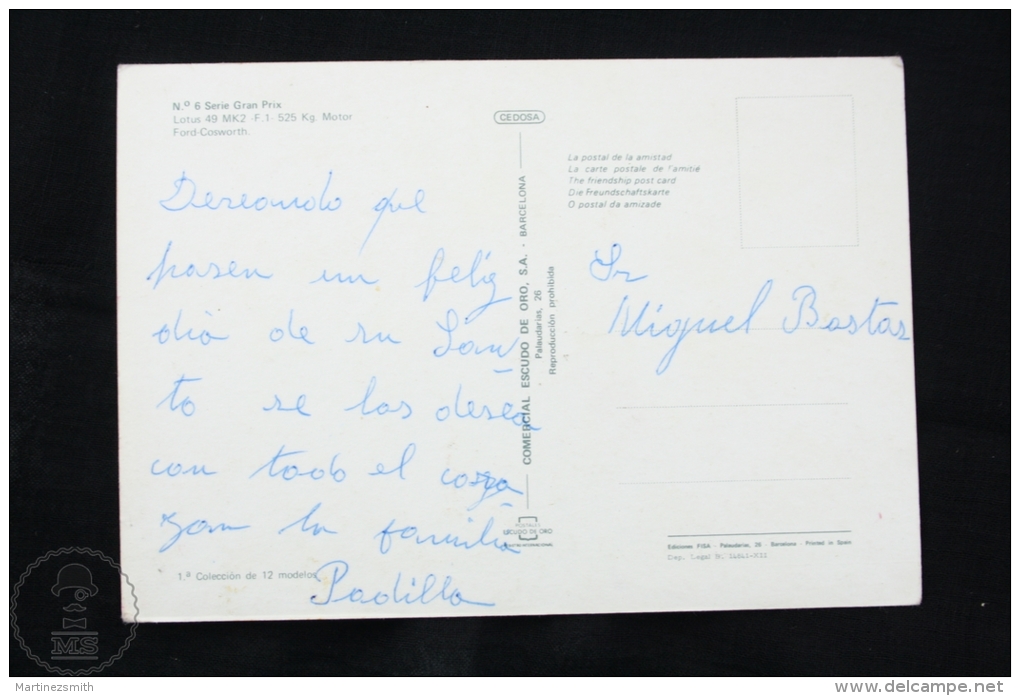 N.º 6 Serie Gran Prix
Lotus 49 MK2 -F.1- 525 Kg. Motor
Ford-Cosworth.
Deseando que
pasen un feliz
dia de su San
to se los desea
con todo el cora
zon la familia
Padilla
1.ª Colección de 12 modelos
CEDOSA
COMERCIAL ESCUDO DE ORO, S.A. - BARCELONA
Palaudarias, 26
Reproducción prohibida
POSTALES
ESCUDO DE ORO
La postal de la amistad
La carte postale de l'amitié
The friendship post card
Die Freundschaftskarte
O postal da amizade
Sr
Miguel Bastas
Ediciones FISA - Palaudarias, 26 - Barcelona - Printed in Spain
Dep. Legal B.
MS
Martinezsmith
www.delcampe.net